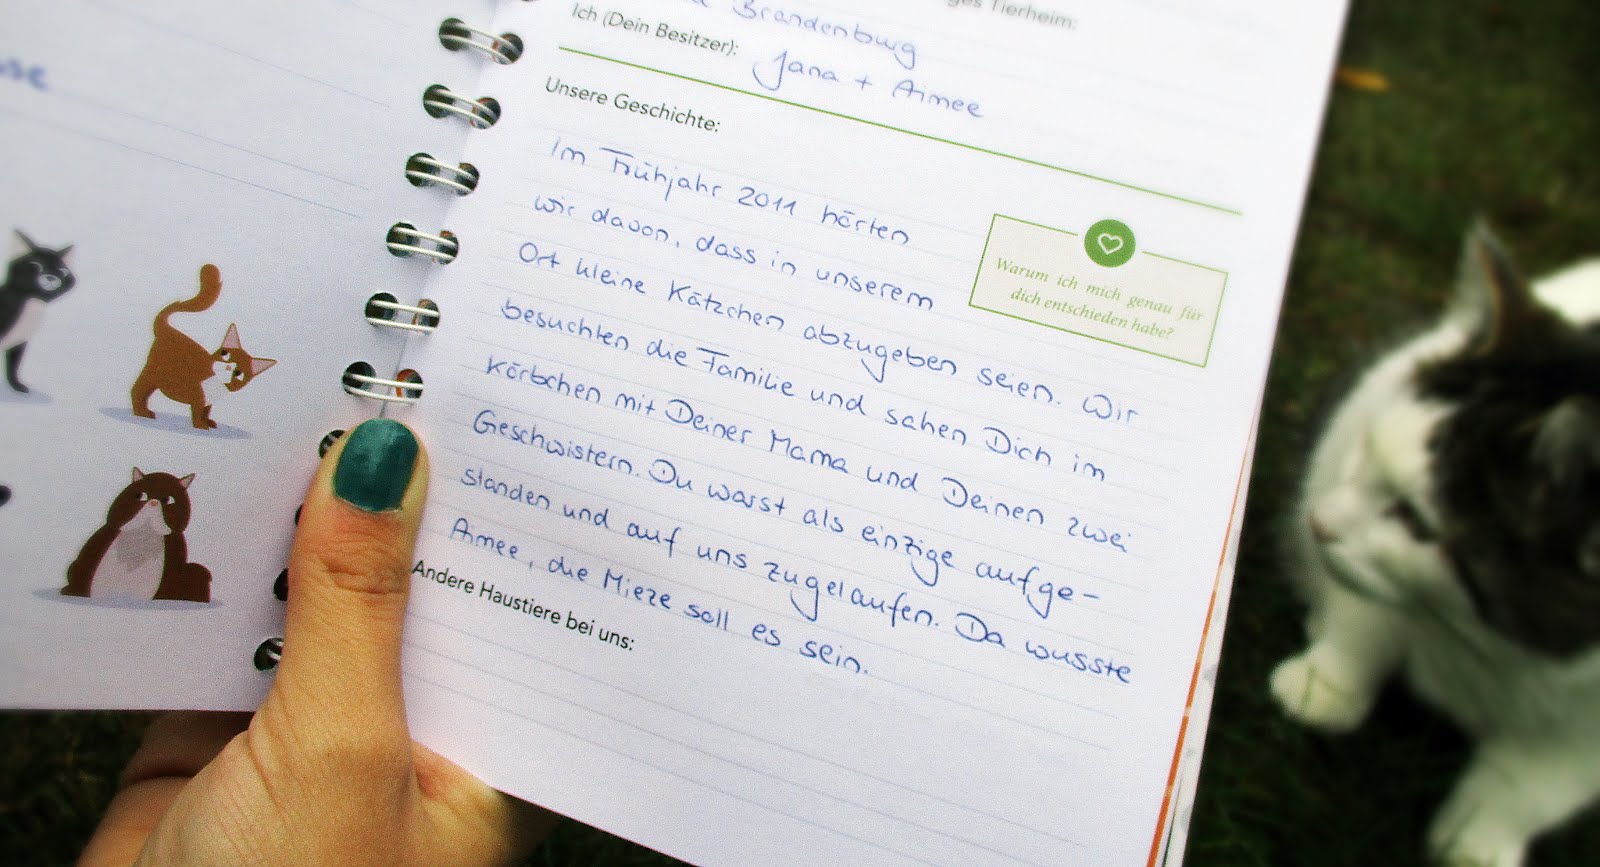 Tierheim:
Brandenburg
Ich (Dein Besitzer): Jana + Aimee
Unsere Geschichte:
Im Frühjahr 2011 hörten
wir davon, dass in unserem
Ort kleine Kätzchen abzugeben seien. Wir
besuchten die Familie und sahen Dich im
Körbchen mit Deiner Mama und Deinen zwei
Geschwistern. Du warst als einzige aufge-
standen und auf uns zugelaufen. Da wusste
Aimee, die Mieze soll es sein.
Warum ich mich genau für
dich entschieden habe?
Andere Haustiere bei uns: